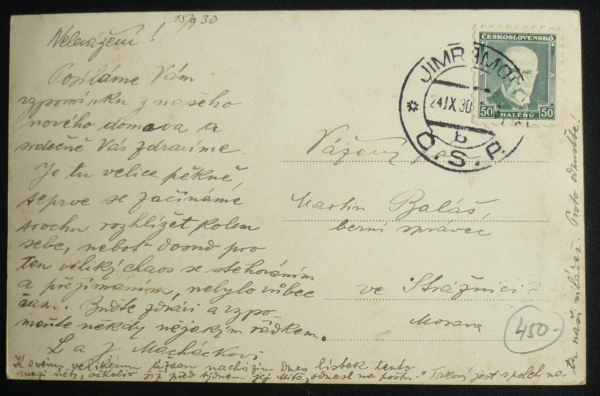 15/9 30
Velevážení!
Posíláme Vám
vzpomínku z našeho
nového domova a
srdečně Vás zdravíme.
Je tu velice pěkně,
teprve se začínáme
trochu rozhlížet kolem
sebe, neboť dosud pro
ten veliký chaos se stěhováním
a přejímáním, nebylo vůbec
čas. Buďte zdrávi a vzpo-
meňte někdy nějakým řádkem.
L a J. Macháčkovi.
K svému velikému úžasu nacházím dnes lístek tento
mezi věcmi, ačkoliv již před týdnem jej měla odnést na poštu. Takový jest spoleh na
tu naši mládež. Proto odpusťte!
ČESKOSLOVENSKO
50 HALÉŘŮ 50
JIMRAMOV
24.IX.30
b
Č.S.P.
Vážený pan
Martin Baláš,
berní správce
ve Strážnici
Morava
450-